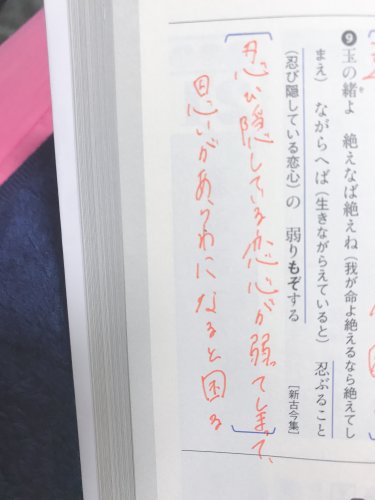 ❾玉の緒よ　絶えなば絶えね(我が命よ絶えるなら絶えてし
まえ)　ながらへば(生きながらえていると)　忍ぶること
(忍び隠している恋心)の　弱りもぞする
［新古今集］
忍び隠している恋心が弱ってしまって、
思いがあらわになると困る